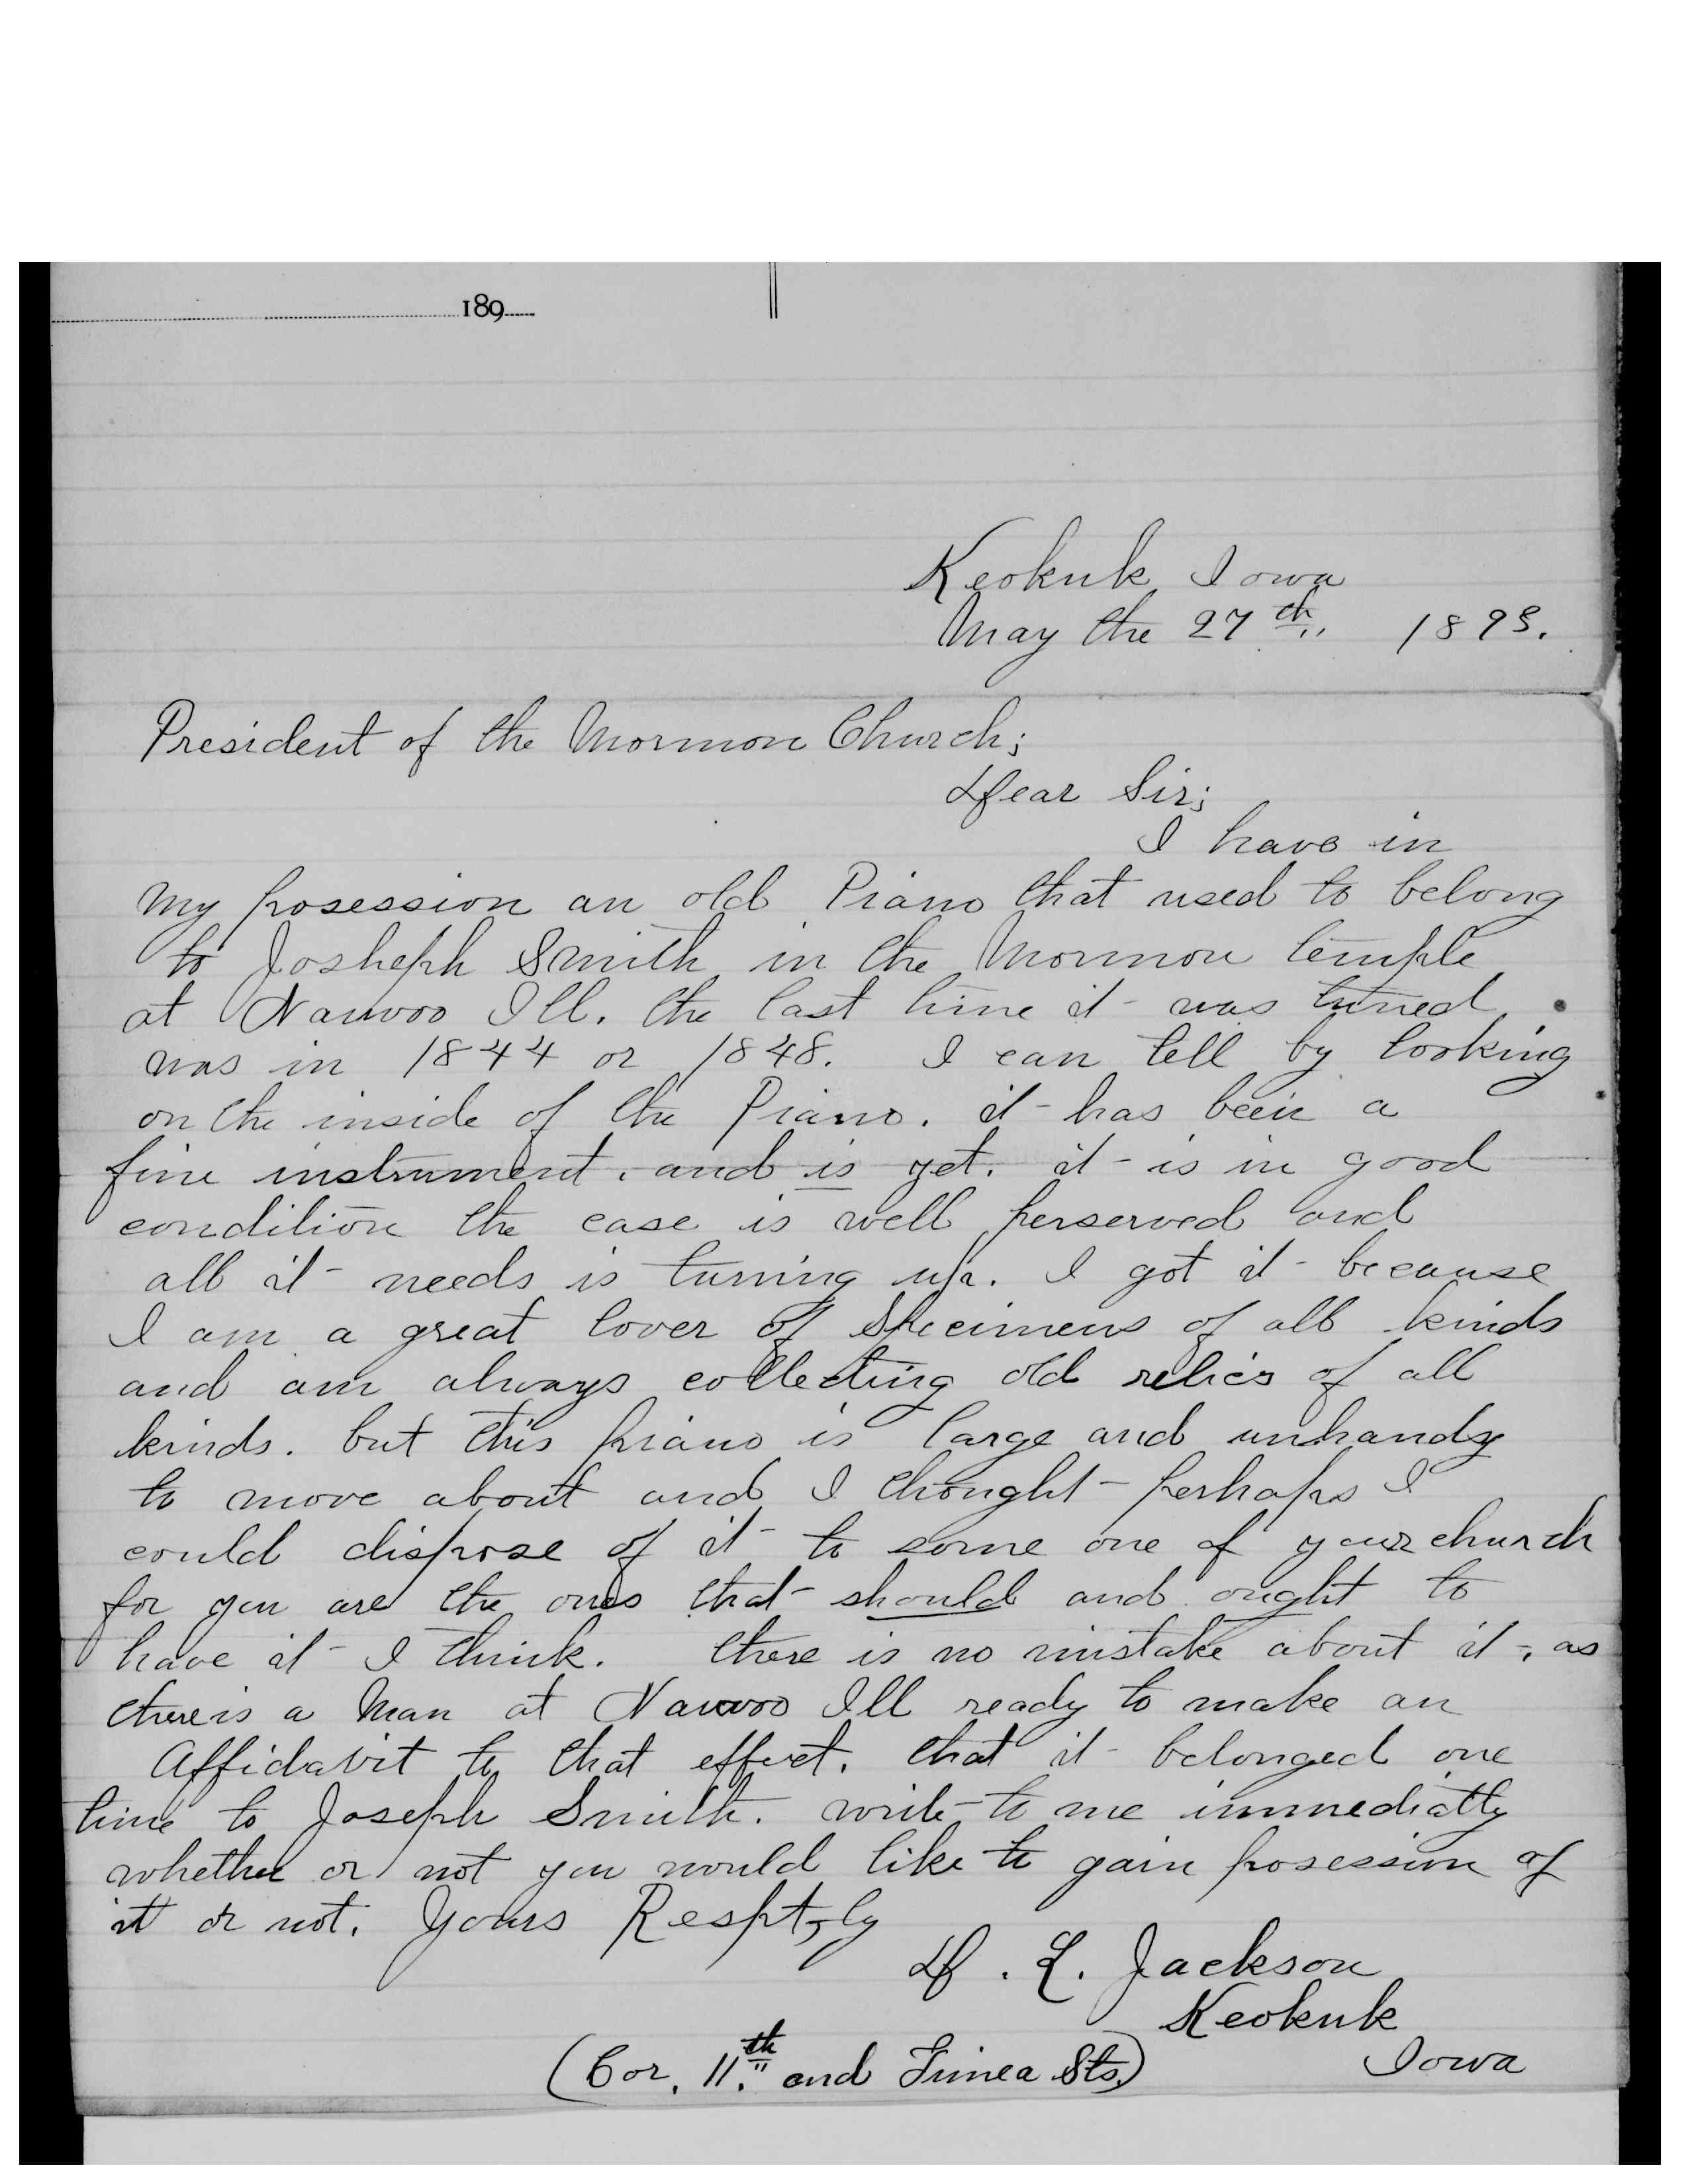 189
Keokuk Iowa
May the 27th,, 1893.
President of the Mormon Church;
Dear Sir;
I have in
my posession an old Piano that used to belong
to Josheph Smith in the Mormon temple
at Nauvoo Ill. the last time it was tuned
was in 1844 or 1848. I can tell by looking
on the inside of the Piano. it has been a
fine instrument. and is yet. it is in good
condition the case is well perserved and
all it needs is tuning up. I got it because
I am a great lover of Specimens of all kinds
and am always collecting old relics of all
kinds. but this piano is large and unhandy
to move about and I thought perhaps I
could dispose of it to some one of your church
for you are the ones that should and ought to
have it I think. there is no mistake about it, as
there is a Man at Nauvoo Ill ready to make an
Affidavit to that effect. that it belonged one
time to Joseph Smith. write to me immediatly
whether or not you would like to gain posession of
it or not. Yours Respt,ly
D. L. Jackson
Keokuk
Iowa
(Cor. 11th and Sts.)